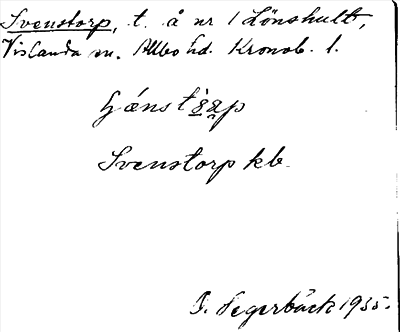 Svenstorp, t. å nr 1 Lönshult,
Vislanda sn. Allbo hd. Kronob. l.
Svenstorp kb.
J. Segerbäck 1935.